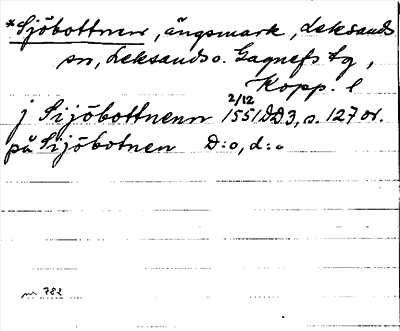 *Sjöbottnen, ängsmark, Leksands
sn, Leksands o. Gagnefs tg,
Kopp. l
j Sijöbottnenn 2/12 1551 DD3, s. 127 or.
på Sijöbotnen D:o, d:o
nr 782